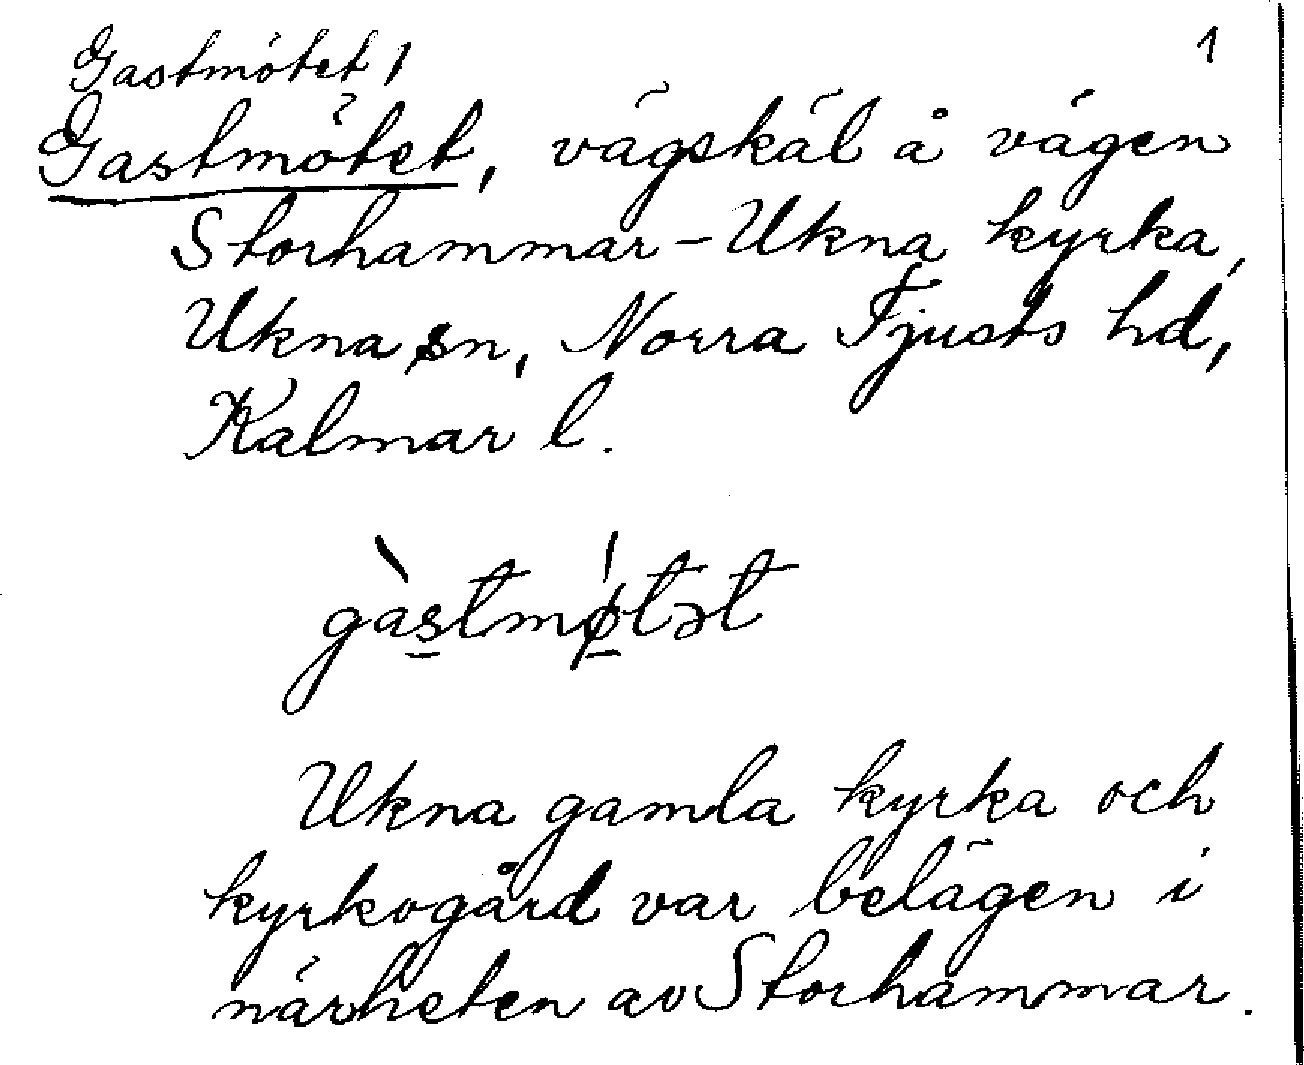 Gastmötet 1 1
Gastmötet, vägskäl å vägen
Storhammar - Ukna kyrka,
Ukna sn, Norra Tjusts hd,
Kalmar l.
gàstmǿtət
Ukna gamla kyrka och
kyrkogård var belägen i
närheten av Storhammar.